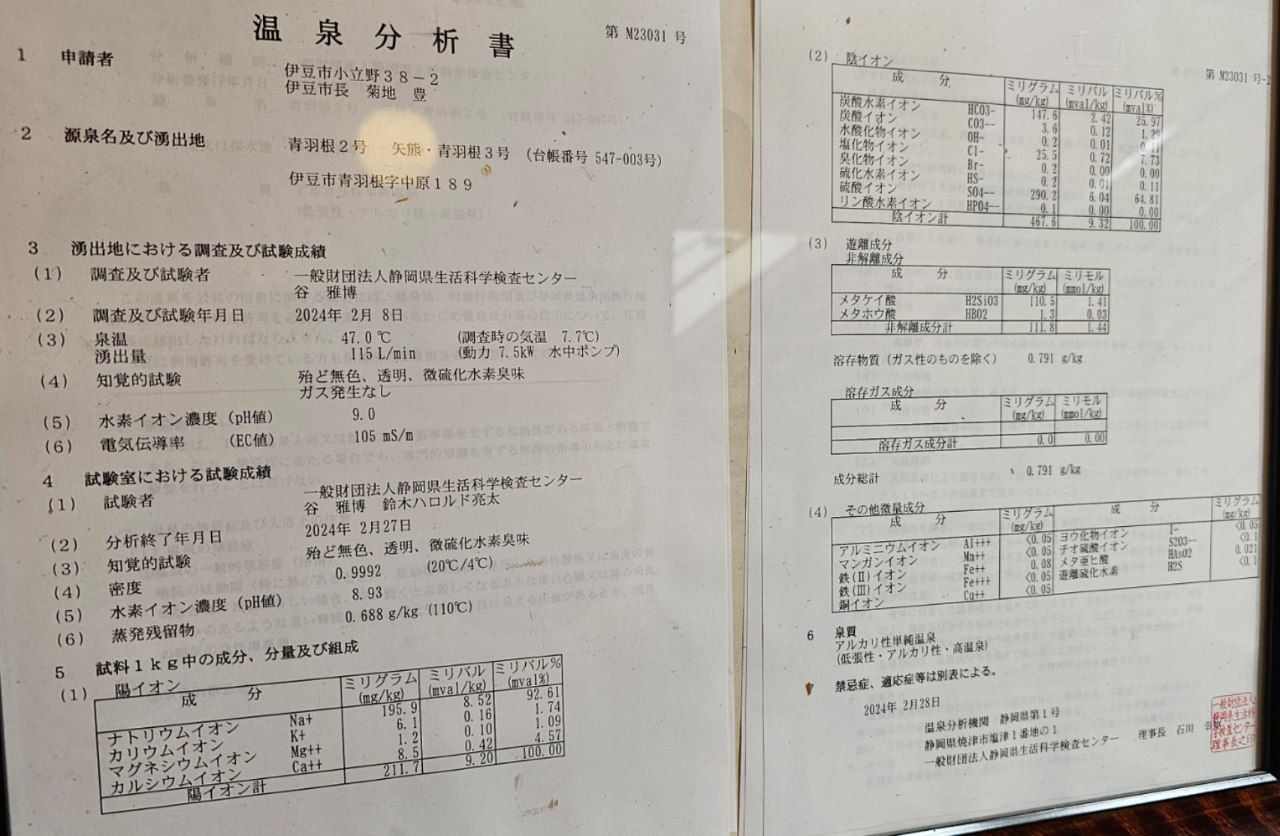 温泉分析書
第 M23031 号
1 申請者
伊豆市小立野38-2
伊豆市長 菊地 豊
2 源泉名及び湧出地
青羽根2号 矢熊・青羽根3号 (台帳番号 547-003号)
伊豆市青羽根字中原189
3 湧出地における調査及び試験成績
(1) 調査及び試験者 一般財団法人静岡県生活科学検査センター
谷 雅博
(2) 調査及び試験年月日 2024年 2月 8日
(3) 泉温 47.0 ℃ (調査時の気温 7.7℃)
湧出量 115 L/min (動力 7.5kW 水中ポンプ)
(4) 知覚的試験 殆ど無色、透明、微硫化水素臭味
ガス発生なし
(5) 水素イオン濃度 (pH値) 9.0
(6) 電気伝導率 (EC値) 105 mS/m
4 試験室における試験成績
(1) 試験者 一般財団法人静岡県生活科学検査センター
谷 雅博 鈴木ハロルド亮太
(2) 分析終了年月日 2024年 2月27日
(3) 知覚的試験 殆ど無色、透明、微硫化水素臭味
(4) 密度 0.9992 (20℃/4℃)
(5) 水素イオン濃度 (pH値) 8.93
(6) 蒸発残留物 0.688 g/kg (110℃)
5 試料1kg中の成分、分量及び組成
(1) 陽イオン
成 分 ミリグラム (mg/kg) ミリバル (mval/kg) ミリバル% (mval%)
ナトリウムイオン Na+ 195.9 8.52 92.61
カリウムイオン K+ 6.1 0.16 1.74
マグネシウムイオン Mg++ 1.2 0.10 1.09
カルシウムイオン Ca++ 8.5 0.42 4.57
陽イオン計 211.7 9.20 100.00
第 M23031 号-2
(2) 陰イオン
成 分 ミリグラム (mg/kg) ミリバル (mval/kg) ミリバル% (mval%)
炭酸水素イオン HCO3- 147.6 2.42 25.97
炭酸イオン CO3-- 3.6 0.12
水酸化物イオン OH- 0.2 0.01
塩化物イオン Cl- 25.5 0.72 7.73
臭化物イオン Br- 0.2 0.00 0.00
硫化水素イオン HS- 0.2 0.01 0.11
硫酸イオン SO4-- 290.2 6.04 64.81
リン酸水素イオン HPO4-- 0.1 0.00 0.00
陰イオン計 467.6 9.32 100.00
(3) 遊離成分
非解離成分
成 分 ミリグラム (mg/kg) ミリモル (mmol/kg)
メタケイ酸 H2SiO3 110.5 1.41
メタホウ酸 HBO2 1.3 0.03
非解離成分計 111.8 1.44
溶存物質 (ガス性のものを除く) 0.791 g/kg
溶存ガス成分
成 分 ミリグラム (mg/kg) ミリモル (mmol/kg)
溶存ガス成分計 0.0 0.00
成分総計 0.791 g/kg
(4) その他微量成分
成 分 ミリグラム (mg/kg) 成 分 ミリグラム (mg/kg)
アルミニウムイオン Al+++ <0.05 ヨウ化物イオン I- <0.05
マンガンイオン Mn++ <0.05 チオ硫酸イオン S2O3-- <0.1
鉄(Ⅱ)イオン Fe++ 0.08 メタ亜ヒ酸 HAsO2 0.021
鉄(Ⅲ)イオン Fe+++ <0.05 遊離硫化水素 H2S <0.1
銅イオン Cu++ <0.05
6 泉質
アルカリ性単純温泉
(低張性・アルカリ性・高温泉)
禁忌症、適応症等は別表による。
2024年 2月28日
温泉分析機関 静岡県第1号
静岡県焼津市塩津1番地の1
一般財団法人静岡県生活科学検査センター 理事長 石川